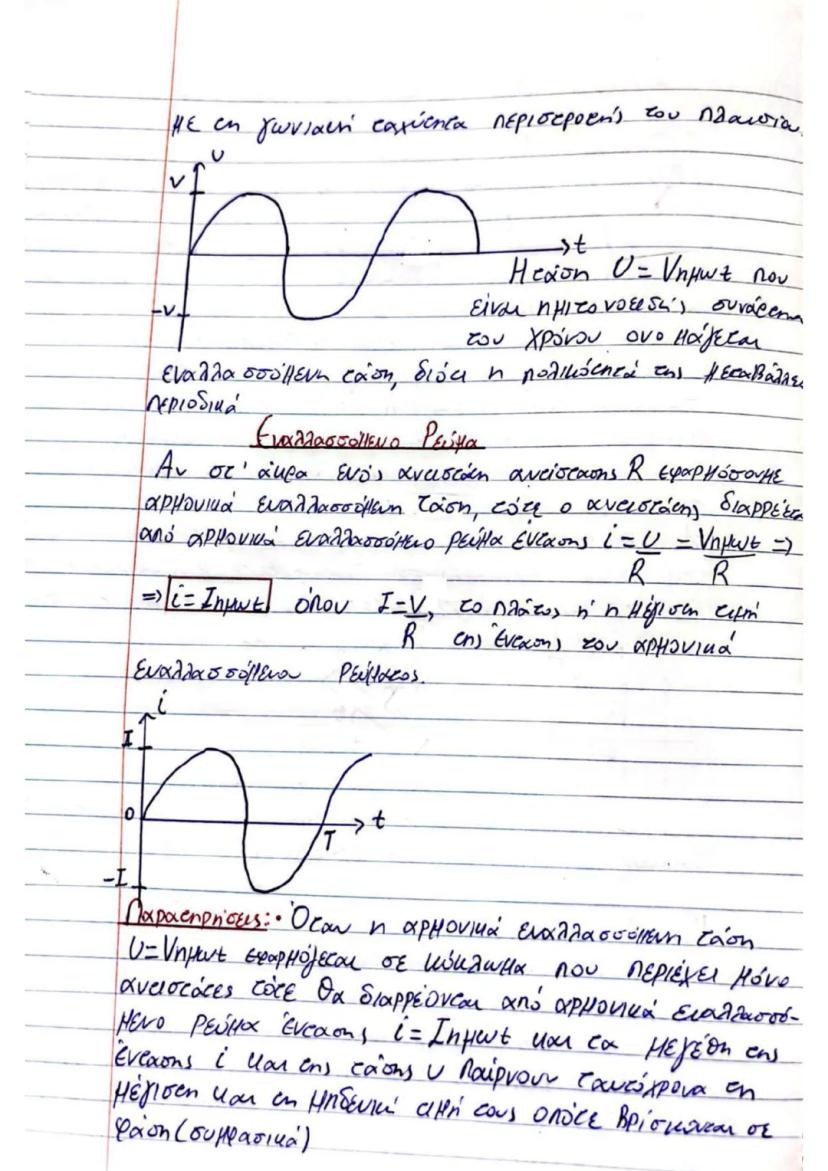 με τη γωνιακή ταχύτητα περιστροφής του πλαισίου
υ
V
t
-V
Η τάση U = Vημωt που
είναι ημιτονοειδής συνάρτηση
του χρόνου ονομάζεται
εναλλασσόμενη τάση, διότι η πολικότητά της μεταβάλλει
περιοδικά
Εναλλασσόμενο Ρεύμα
Αν στ' άκρα ενός αντιστάτη αντίστασης R εφαρμόσουμε
αρμονικά εναλλασσόμενη τάση, τότε ο αντιστάτης διαρρέεται
από αρμονικά εναλλασσόμενο ρεύμα έντασης i = U/R = Vημωt/R =>
=> i = Iημωt όπου I = V/R, το πλάτος ή η μέγιστη τιμή
της έντασης του αρμονικά
εναλλασσόμενου ρεύματος.
i
I
0
t
T
-I
Παρατηρήσεις: • Όταν η αρμονικά εναλλασσόμενη τάση
U = Vημωt εφαρμόζεται σε κύκλωμα που περιέχει μόνο
αντιστάτες τότε θα διαρρέονται από αρμονικά εναλλασσό-
μενο ρεύμα έντασης i = Iημωt και τα μεγέθη της
έντασης i και της τάσης υ παίρνουν ταυτόχρονα τη
μέγιστη και τη μηδενική τιμή τους οπότε βρίσκονται σε
φάση (συμφασικά)